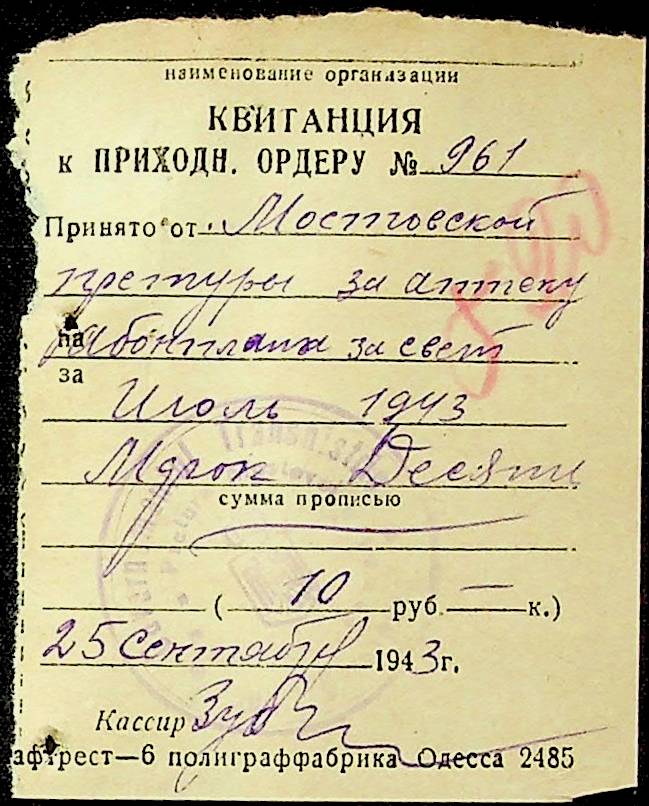 наименование организации
КВИТАНЦИЯ
к ПРИХОДН. ОРДЕРУ № 961
Принято от Мостовской
претуры за аптеку
на Абонплата за свет
за Июль 1943
Марок Десять
сумма прописью
( 10 руб — к.)
25 Сентября 1943 г.
Кассир
афтрест—6 полиграффабрика Одесса 2485
Transnistr